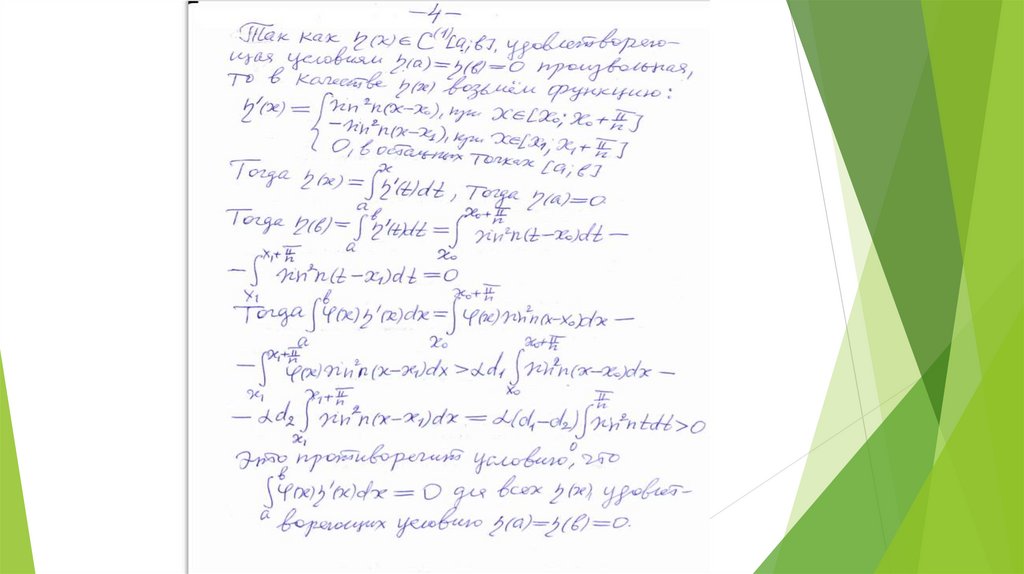 —4—
Так как η(x)∈C⁽¹⁾[a;b], удовлетворяю-
щая условиям η(a)=η(b)=0 произвольная,
то в качестве η(x) возьмём функцию:
η'(x) = { sin²n(x-x₀), при x∈[x₀; x₀+π/n]
-sin²n(x-x₁), при x∈[x₁; x₁+π/n]
0, в остальных точках [a;b]
Тогда η(x) = ∫ₐˣ η'(t)dt, Тогда η(a)=0
Тогда η(b) = ∫ₐᵇ η'(t)dt = ∫_{x₀}^{x₀+π/n} sin²n(t-x₀)dt —
— ∫_{x₁}^{x₁+π/n} sin²n(t-x₁)dt = 0
Тогда ∫ₐᵇ φ(x)η'(x)dx = ∫_{x₀}^{x₀+π/n} φ(x)sin²n(x-x₀)dx —
— ∫_{x₁}^{x₁+π/n} φ(x)sin²n(x-x₁)dx > αd₁ ∫_{x₀}^{x₀+π/n} sin²n(x-x₀)dx —
— αd₂ ∫_{x₁}^{x₁+π/n} sin²n(x-x₁)dx = α(d₁-d₂) ∫₀^{π/n} sin²nt dt > 0
Это противоречит условию, что
∫ₐᵇ φ(x)η'(x)dx = 0 для всех η(x), удовлет-
воряющих условию η(a)=η(b)=0.